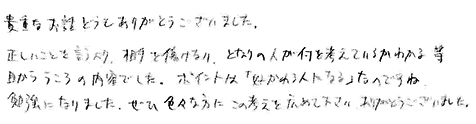 貴重なお話どうもありがとうございました。
正しいことを言うより、相手を傷けない、となりの人が何を考えているかわかる 等
目からうろこの内容でした。ポイントは「好かれる人になる」なのですね
勉強になりました。ぜひ色々な方にこの考えを広めて下さい。ありがとうございました。